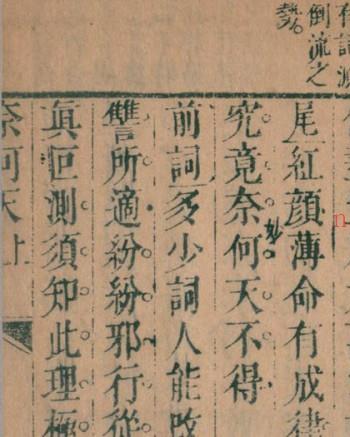 詞源
倒流之
勢
尾紅顔薄命有成律
究竟奈何天不得
妙
前詞多少詞人能改
讐所適紛紛邪行從
眞叵測須知此理極
奈何天上